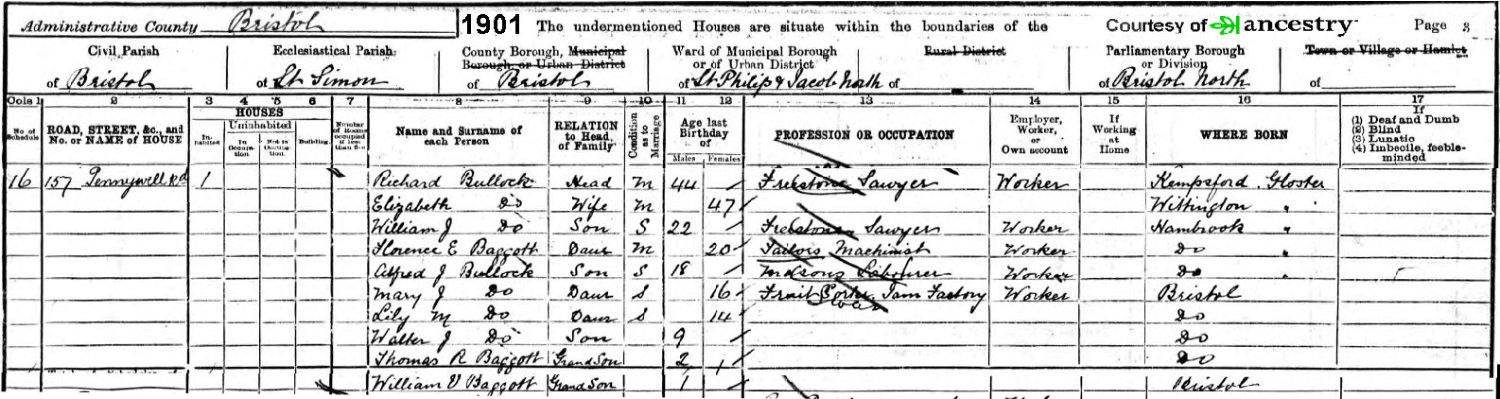 Administrative County Bristol 1901 The undermentioned Houses are situate within the boundaries of the Courtesy of ancestry Page 3
Civil Parish Ecclesiastical Parish County Borough, Municipal Ward of Municipal Borough Rural District Parliamentary Borough Town or Village or Hamlet
Borough, or Urban District or of Urban District or Division
of Bristol of St. Simon of Bristol of St Philip & Jacob North of of Bristol North of
Cols 1 2 3 4 5 6 7 8 9 10 11 12 13 14 15 16 17
No. of Schedule ROAD, STREET, &c., and No. or NAME of HOUSE HOUSES Inhabited Uninhabited In Occupation Not in Occupation Building Number of Rooms occupied if less than five Name and Surname of each Person RELATION to Head of Family Condition as to Marriage Age last Birthday of Males Females PROFESSION OR OCCUPATION Employer, Worker, or Own account If Working at Home WHERE BORN If (1) Deaf and Dumb (2) Blind (3) Lunatic (4) Imbecile, feeble-minded
16 157 Pennywell Rd 1 Richard Bullock Head M 44 Freestone Sawyer Worker Kempsford, Gloster
Elizabeth Do Wife M 47 Wittington "
William J Do Son S 22 Freestone Sawyer Worker Hambrook "
Florence E Baggott Daur M 20 Tailors Machinist Worker Do "
Alfred J Bullock Son S 18 Masons Labourer Worker Do "
Mary J Do Daur S 16 Fruit Jam Factory Worker Bristol
Lily M Do Daur S 14 Do
Walter J Do Son 9 Do
Thomas R Baggott GrandSon 2 Do
William V Baggott GrandSon 1 Bristol